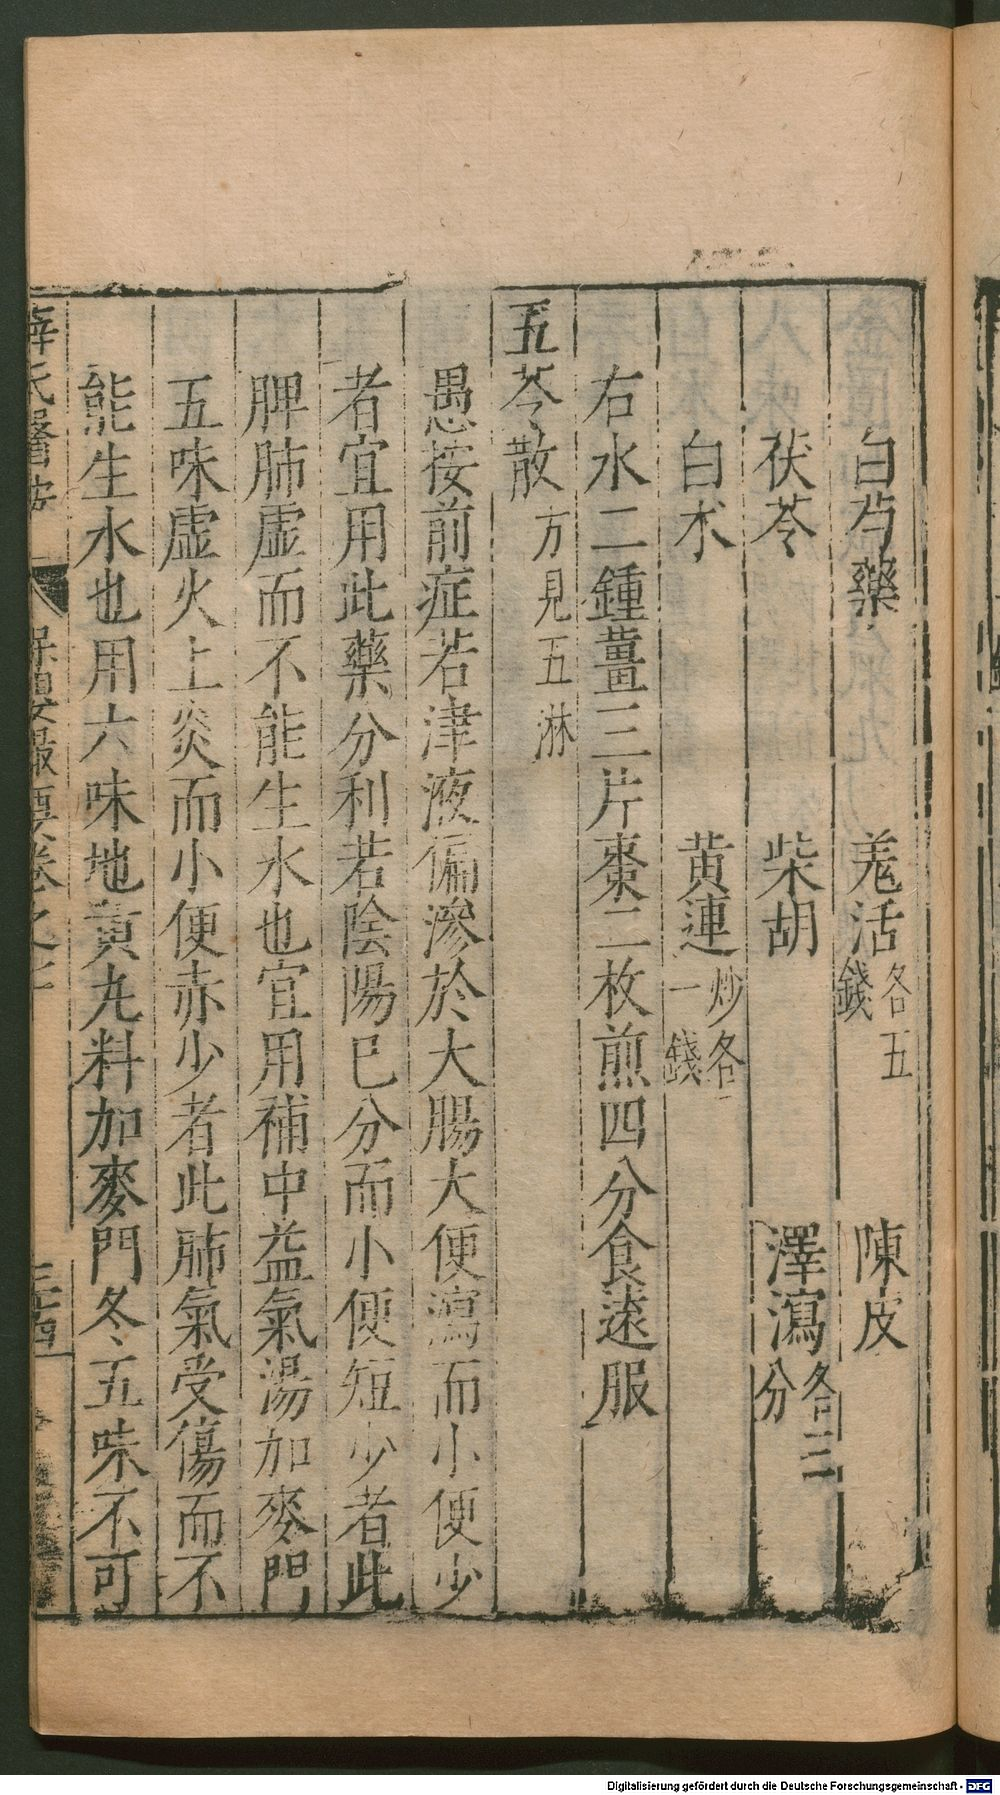 白芍藥　羗活各五錢　陳皮
茯苓　柴胡　澤瀉各三分
白朮　黄連炒各一錢
右水二鍾薑三片棗二枚煎四分食遠服
五苓散方見五淋
愚按前症若津液偏滲於大腸大便瀉而小便少
者宜用此藥分利若陰陽已分而小便短少者此
脾肺虛而不能生水也宜用補中益氣湯加麥門
五味虛火上炎而小便赤少者此肺氣受傷而不
能生水也用六味地黃丸料加麥門冬五味不可
薛氏醫按　保嬰撮要卷之　三四
Digitalisierung gefördert durch die Deutsche Forschungsgemeinschaft - DFG